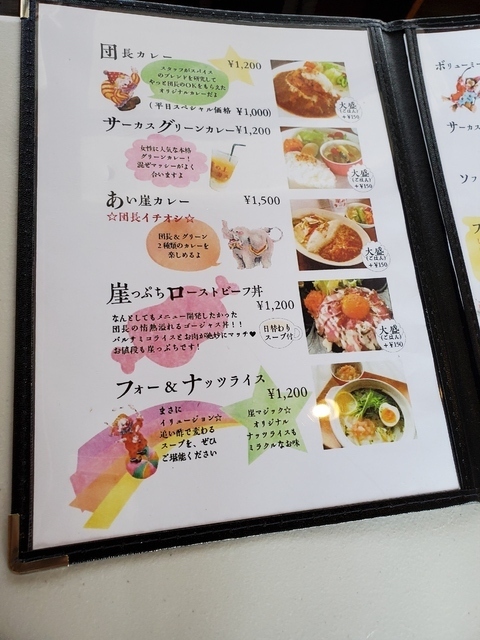 団長カレー ¥1,200
スタッフがスパイス
のブレンドを研究して
やっと団長のOKをもらえた
オリジナルカレーだよ
(平日スペシャル価格 ¥1,000)
大盛
(ごはん)
+¥150
サーカスグリーンカレー¥1,200
女性に人気な本格
グリーンカレー!
混ぜマッシーがよく
合いますよ
大盛
(ごはん)
+¥150
あい崖カレー ¥1,500
☆団長イチオシ☆
団長&グリーン
2種類のカレーを
楽しめるよ
大盛
(ごはん)
+¥150
崖っぷちローストビーフ丼
¥1,200
なんとしてもメニュー開発したかった
団長の情熱溢れるゴージャス丼!!
バルサミコライスとお肉が絶妙にマッチ♥
お値段も崖っぷちです!
日替わり
スープ付
大盛
(ごはん)
+¥150
フォー&ナッツライス
¥1,200
まさに
イリュージョン☆
追い酢で変わる
スープを、ぜひ
ご堪能ください
崖マジック☆
オリジナル
ナッツライスも
ミラクルなお味
ボリューミー
サーカス
ソフ